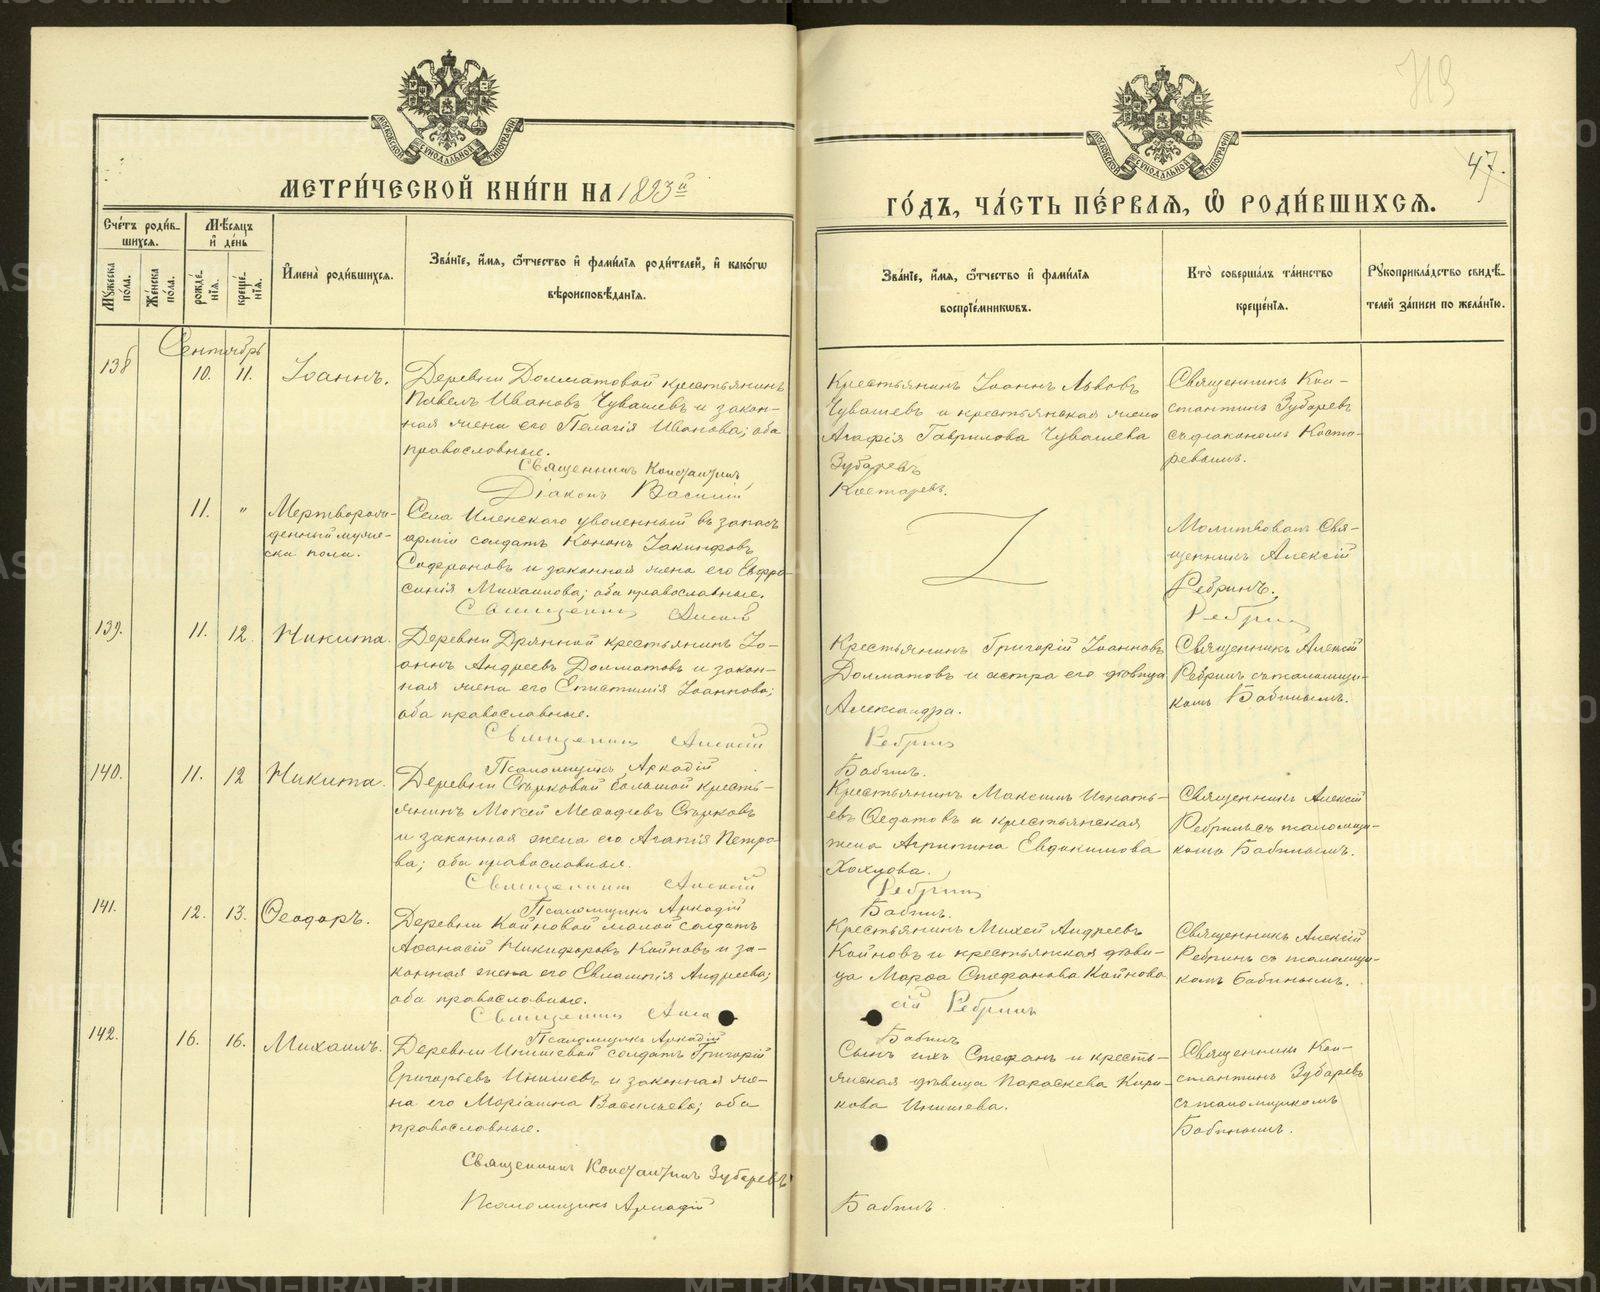 МЕТРИ́ЧЕСКОЙ КНИ́ГИ НА 1893й
ГО́ДЪ, ЧА́СТЬ ПЕ́РВАѦ, Ѡ҆ РОДИ́ВШИХСѦ.
47.
Сче́тъ роди́в-
шихсѧ.
Мѣ́сѧцъ
и҆ де́нь
Мꙋ́жеска по́ла.
Же́нска по́ла.
рожде́-
нїѧ.
креще́-
нїѧ.
И҆мена̀ роди́вшихсѧ.
Зва́нїе, и҆́мѧ, ѻ҆́тчество и҆ фами́лїѧ роди́телей, и҆ како́гѡ
вѣроисповѣ́данїѧ.
Зва́нїе, и҆́мѧ, ѻ҆́тчество и҆ фами́лїѧ
воспрїе́мникѡвъ.
Кто̀ соверша́лъ та́инство
креще́нїѧ.
Рꙋкоприкла́дство свидѣ́-
телей за́писи по жела́нїю.
Сентябрь
138
10.
11.
Іоаннъ.
Деревни Долматовой крестьянинъ
Павелъ Ивановъ Чувашевъ и закон-
ная жена его Пелагія Иванова; оба
православные.
Священникъ Константинъ
Діаконъ Василій
Крестьянинъ Іоаннъ Львовъ
Чувашевъ и крестьянская жена
Агафія Гаврилова Чувашева
Зубаревъ
Костаревъ.
Священникъ Кон-
стантинъ Зубаревъ
съ діакономъ Коста-
ревымъ.
11.
"
Мертворож-
денный муже-
ска пола.
Села Иленскаго уволенный въ запасъ
арміи солдатъ Кононъ Іакинфовъ
Софроновъ и законная жена его Евфро-
синія Михаилова; оба православные.
Священникъ Алексій
Молитвовалъ Свя-
щенникъ Алексій
Ребринъ.
Ребринъ
139.
11.
12.
Никита.
Деревни Дрянной крестьянинъ Іо-
аннъ Андреевъ Долматовъ и закон-
ная жена его Епистимія Іоаннова;
оба православные.
Священникъ Алексій
Псаломщикъ Аркадій
Крестьянинъ Григорій Іоанновъ
Долматовъ и сестра его дѣвица
Александра.
Ребринъ
Бабинъ.
Священникъ Алексій
Ребринъ съ псаломщи-
комъ Бабинымъ.
140.
11.
12
Никита.
Деревни Старковой большой кресть-
янинъ Моѵсей Меѳодіевъ Старковъ
и законная жена его Агапія Петро-
ва; оба православные.
Священникъ Алексій
Псаломщикъ Аркадій
Крестьянинъ Максимъ Игнать-
евъ Ѳедотовъ и крестьянская
жена Агрипина Евдокимова
Хохлова.
Ребринъ
Бабинъ.
Священникъ Алексій
Ребринъ съ псаломщи-
комъ Бабинымъ.
141.
12.
13.
Ѳеодоръ.
Деревни Койновой малой солдатъ
Аѳанасій Никифоровъ Койновъ и за-
конная жена его Евлампія Андреева;
оба православные.
Священникъ Алек
Псаломщикъ Аркадій
Крестьянинъ Михей Андреевъ
Койновъ и крестьянская дѣви-
ца Марѳа Стефанова Койнова
сій Ребринъ
Бабинъ
Священникъ Алексій
Ребринъ съ псаломщи-
комъ Бабинымъ.
142.
16.
16.
Михаилъ.
Деревни Инишевой солдатъ Григорій
Григорьевъ Инишевъ и законная же-
на его Маріамна Васильева; оба
православные.
Священникъ Константинъ Зубаревъ
Псаломщикъ Аркадій
Сынъ ихъ Стефанъ и кресть-
янская дѣвица Параскева Кири-
кова Инишева.
Бабинъ
Священникъ Кон-
стантинъ Зубаревъ
съ псаломщикомъ
Бабинымъ.